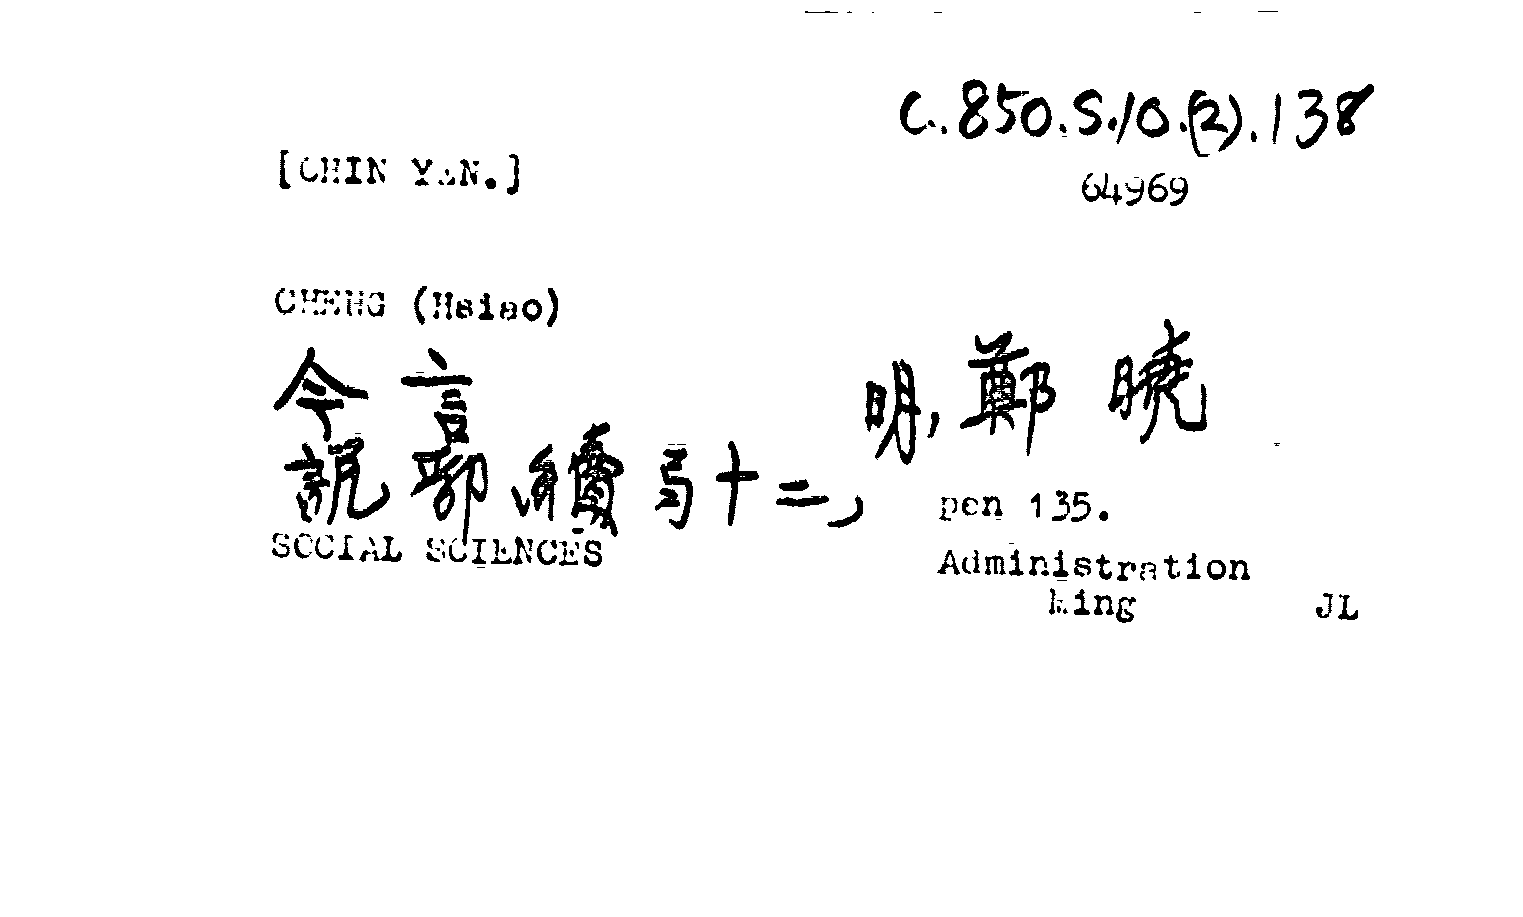 C.850.S.10.(2).138
[CHIN YEN.]
64969
CHENG (Hsiao)
今言
明,鄭曉
說郛續弓十二,
pen 135.
SOCIAL SCIENCES
Administration
Ming
JL